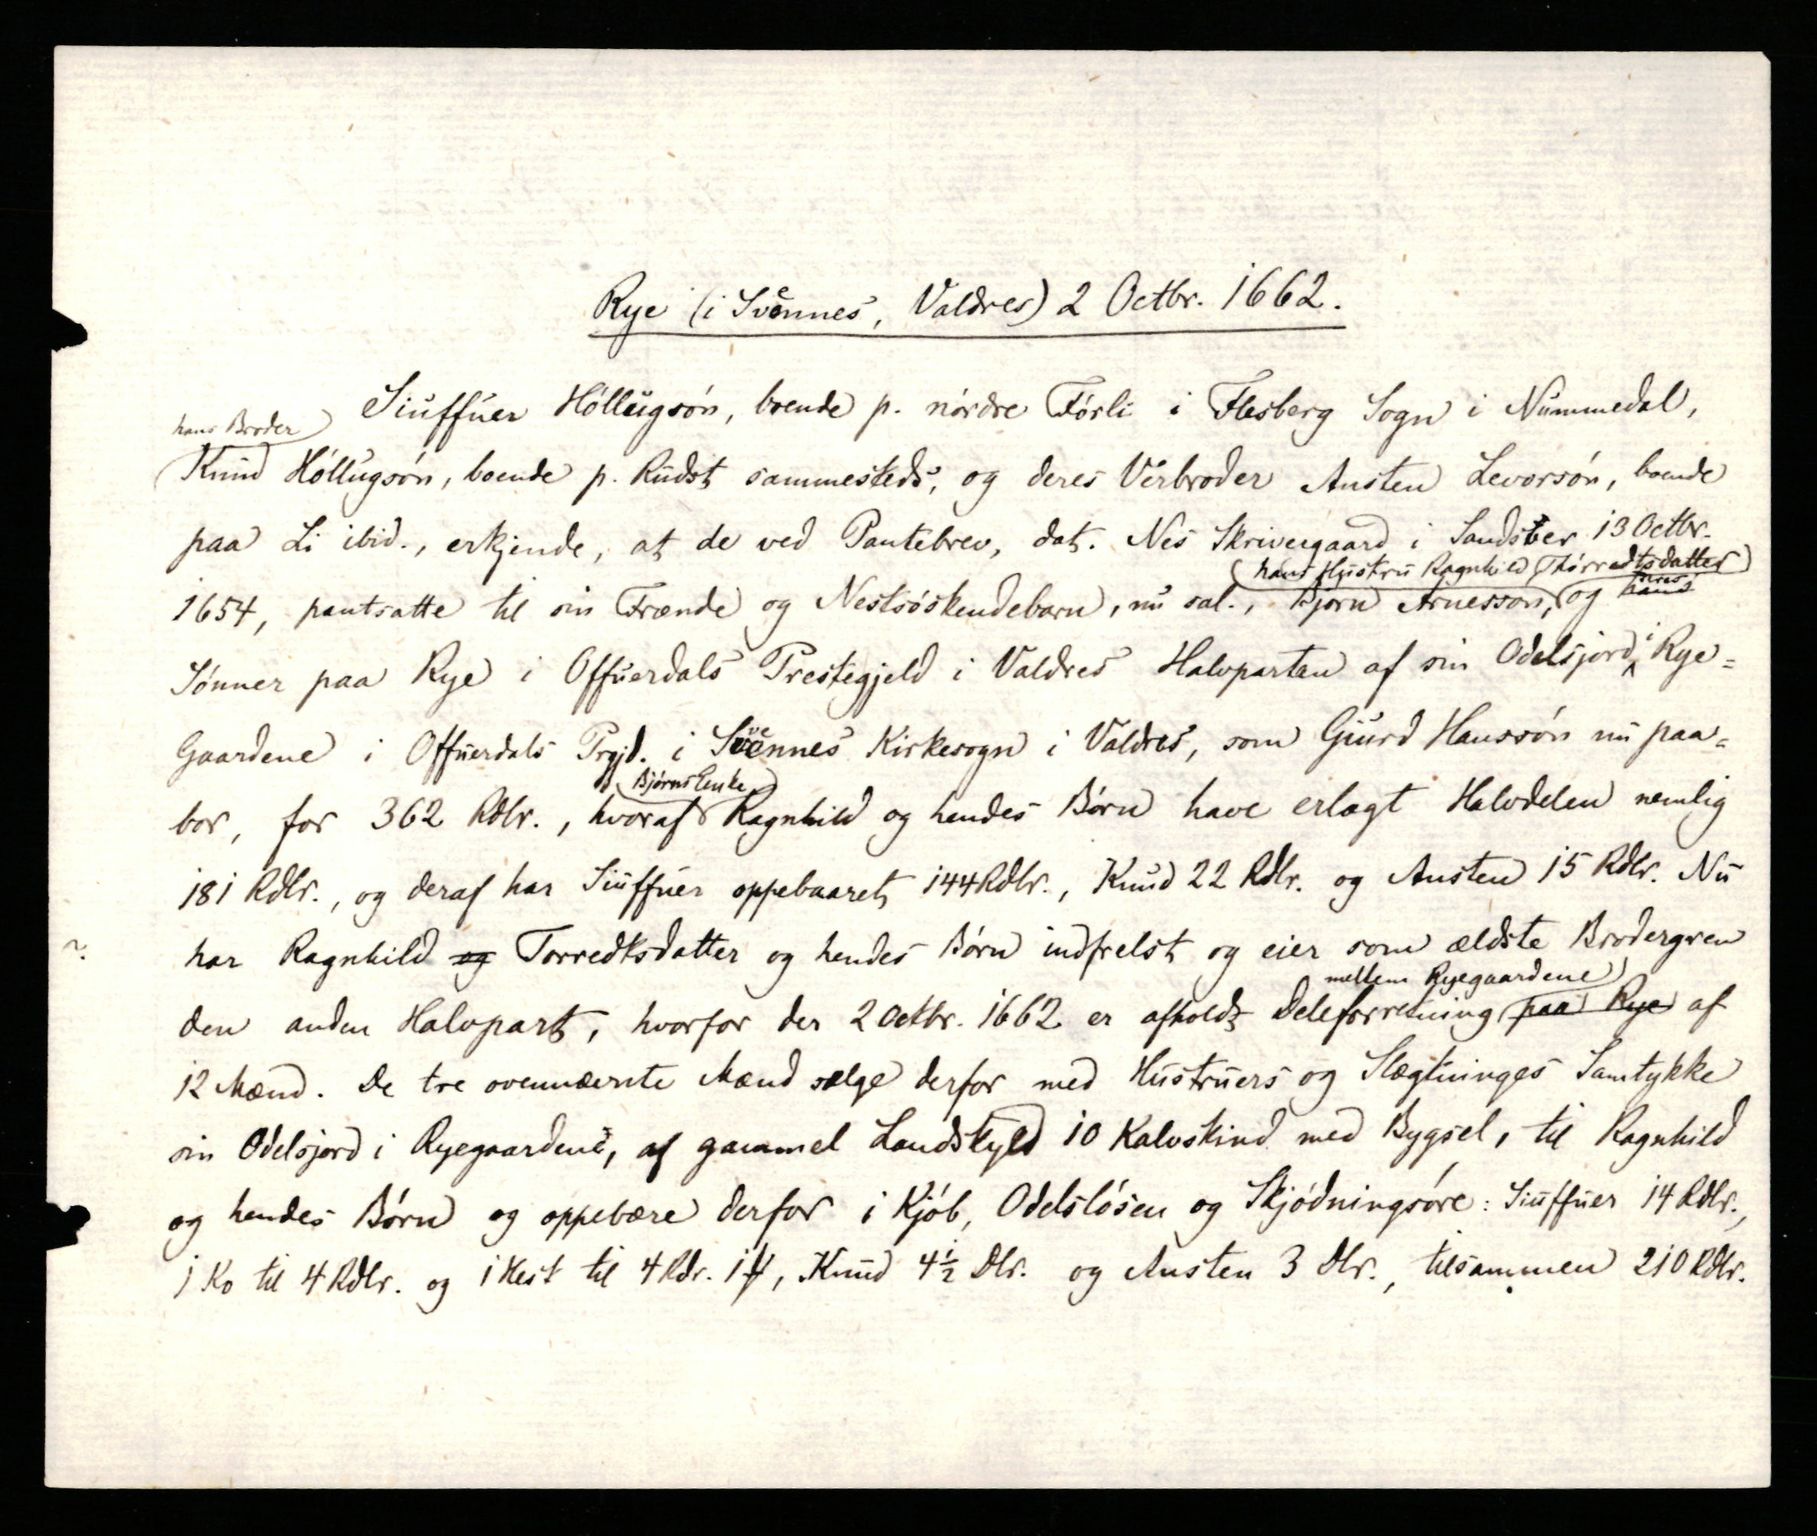 Rye (i Svennes, Valdres) 2 Octbr. 1662.
Siuffuer Höllugsön, boende p. nórdre Fórli i Flesberg Sogn i Nummedal,
hans Broder
Knud Höllugsón, boende p. Rudst sammesteds, og deres Verbroder Austen Levorsón, boende
paa Li ibid., erkjende, at de ved Pantebrev, dat. Nes Skrivergaard i Sandsver 13 Octbr.
hans Hustru Ragnhild Thórredtsdatter
1654, pantsatte til sin Frænde og Nestsóskendebarn, nu sal., Bjórn Arnessøn, og
Sónner paa Rye i Offuerdals Prestegjeld i Valdres Halvparten af sin Odelsjord i Rye=
Gaardene i Offuerdals Prgjd. i Svennes Kirkesogn i Valdres, som Giurd Hanssón nu paa=
Bjórns Enke
bor, for 362 Rdlr., hvoraf Ragnhild og hendes Bórn have erlagt Halvdelen nemlig
181 Rdlr., og deraf har Siuffuer oppebaaret 144 Rdlr., Knud 22 Rdlr. og Austen 15 Rdlr. Nu
har Ragnhild og Torredtsdatter og hendes Bórn indfrelst og eier som ældste Brodergren
mellem Ryegaardene
den anden Halvpart, hvorfor der 2 Octbr. 1662 er afholdt Deleforretning paa Rye af
12 Mænd. De tre ovennævnte Mænd sælge derfor med Hustruers og Slægtninges Samtykke
sin Odelsjord i Ryegaardene, af gammel Landskyld 10 Kalvskind med Bygsel, til Ragnhild
og hendes Bórn og oppebære derfor i Kjób, Odelslósen og Skjódningsóre: Siuffuer 14 Rdlr.,
1 Ko til 4 Rdlr. og 1 Hest til 4 Rdr. 1 , Knud 4½ Dlr. og Austen 3 Dlr., tilsammen 210 Rdlr.